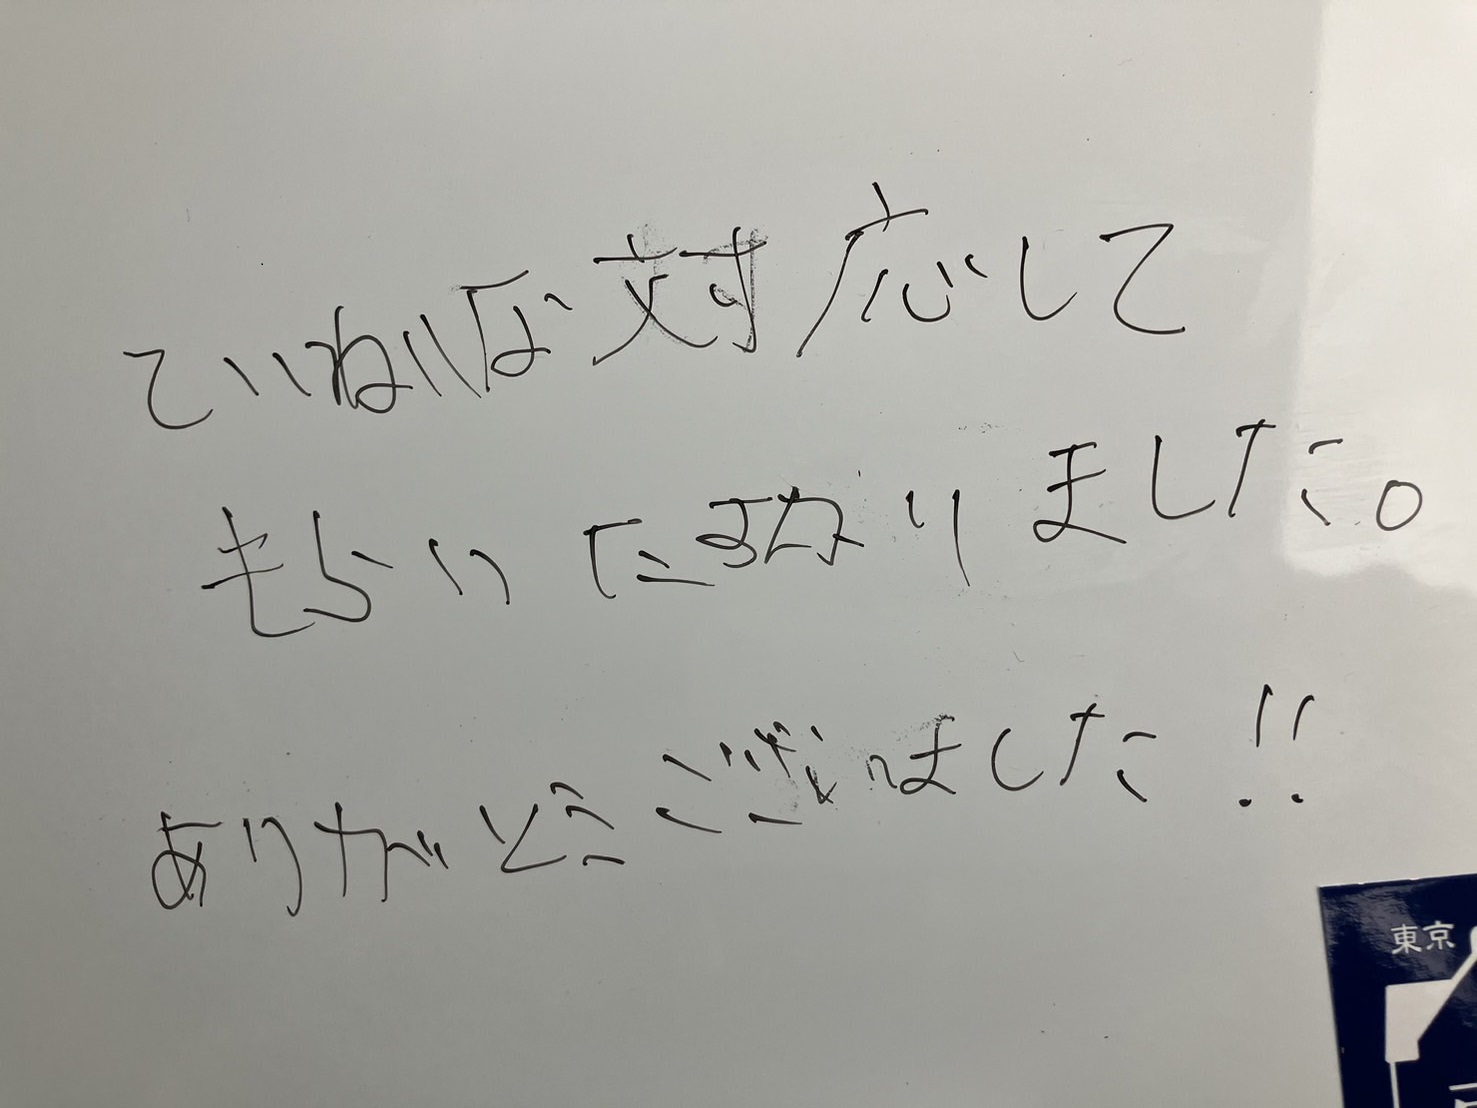 ていねいな対応して
もらいたすかりました。
ありがとうございました!!
東京